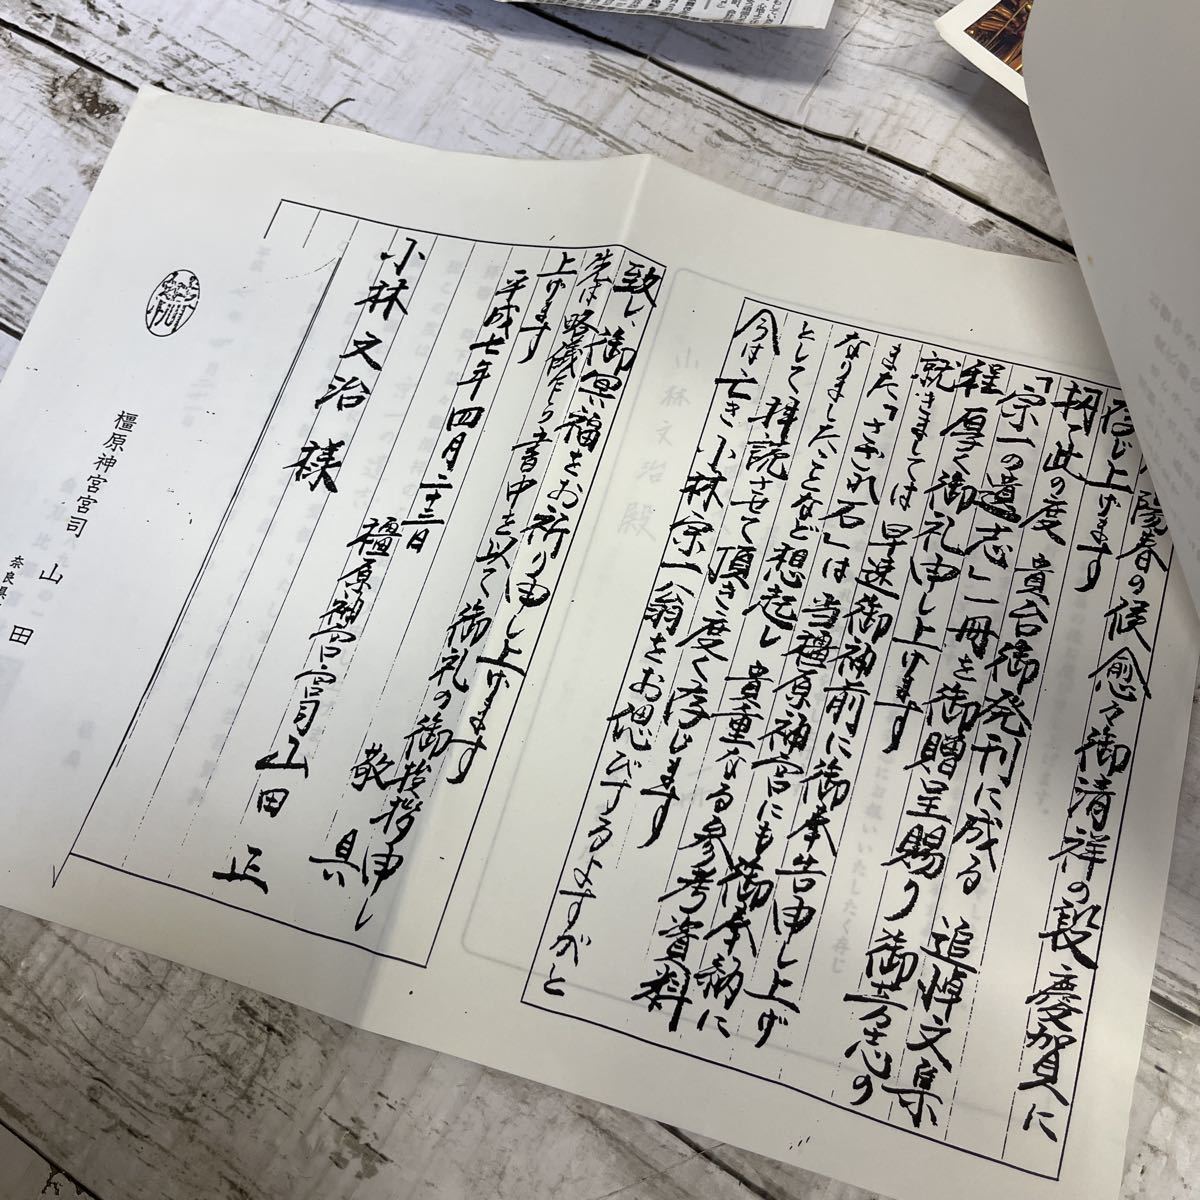 陽春の候 愈々御清祥の段 慶賀に
存じ上げます
扨て此の度 貴台御発刊に成る 追悼文集
「宗一の遺志」一冊を御贈呈賜り 御芳志の
程 厚く御礼申し上げます
就きましては早速御神前に御奉告申し上げ
また「さざれ石」は当橿原神宮にも御奉納に
なりましたことなど想起し 貴重なる参考資料
として拝読させて頂き度く存じます
今は亡き小林宗一翁をお偲びするよすがと
致し、御冥福をお祈り申し上げます
先は略儀乍ら書中を以て御礼の御挨拶申し
上げます
敬具
平成七年四月二十三日
橿原神宮宮司 山田 正
小林文治様
橿原神宮宮司 山田
奈良県
小林文治殿